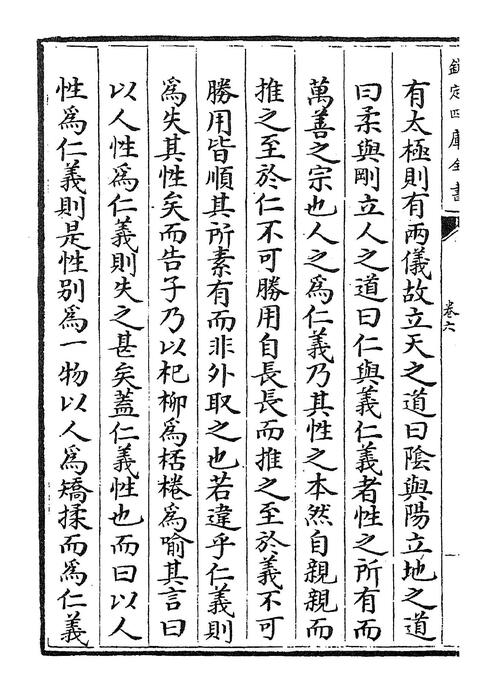 欽定四庫全書
卷六
有太極則有兩儀故立天之道曰陰與陽立地之道
曰柔與剛立人之道曰仁與義仁義者性之所有而
萬善之宗也人之爲仁義乃其性之本然自親親而
推之至於仁不可勝用自長長而推之至於義不可
勝用皆順其所素有而非外取之也若違乎仁義則
爲失其性矣而告子乃以杞柳爲桮棬爲喻其言曰
以人性爲仁義則失之甚矣蓋仁義性也而曰以人
性爲仁義則是性别爲一物以人爲矯揉而爲仁義